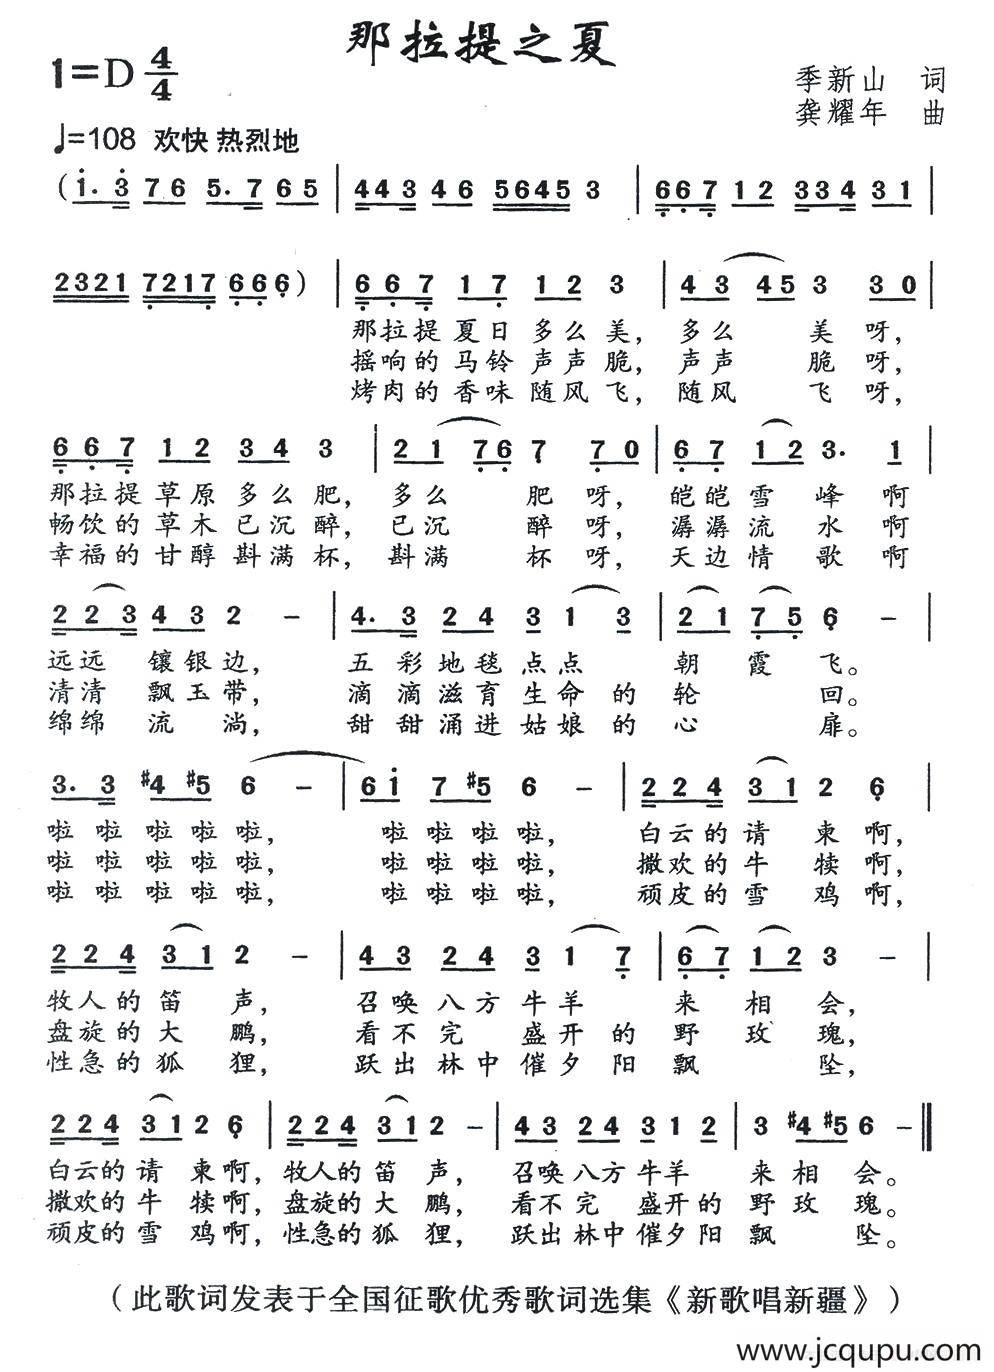 那拉提之夏
1=D 4/4
季新山 词
龚耀年 曲
♩=108 欢快 热烈地
(1̇. 3̇ 76 5. 7 65 | 443 46 5645 3 | 667 12 334 31 |
2321 7217 66 6) | 667 17 12 3 | 43 45 3 30 |
那拉提 夏日 多么 美, 多么 美 呀,
摇响的 马铃 声声 脆, 声声 脆 呀,
烤肉的 香味 随风 飞, 随风 飞 呀,
667 12 34 3 | 21 76 7 70 | 67 12 3. 1 |
那拉提 草原 多么 肥, 多么 肥 呀, 皑皑 雪 峰 啊
畅饮的 草木 已沉 醉, 已沉 醉 呀, 潺潺 流 水 啊
幸福的 甘醇 斟满 杯, 斟满 杯 呀, 天边 情 歌 啊
223 43 2 - | 4. 3 24 31 3 | 21 75 6 - |
远远 镶银边, 五彩地毯点点 朝霞飞。
清清 飘玉带, 滴滴滋育生命的轮 回。
绵绵 流 淌, 甜甜涌进姑娘的心 扉。
3. 3 #4 #5 6 - | 61̇ 7 #5 6 - | 224 31 2 6 |
啦啦啦啦啦, 啦啦啦啦, 白云的请柬啊,
啦啦啦啦啦, 啦啦啦啦, 撒欢的牛犊啊,
啦啦啦啦啦, 啦啦啦啦, 顽皮的雪鸡啊,
224 31 2 - | 43 24 31 7 | 67 12 3 - |
牧人的笛声, 召唤八方牛羊 来相会,
盘旋的大鹏, 看不完盛开的野玫瑰,
性急的狐狸, 跃出林中催夕阳飘 坠,
224 31 2 6 | 224 31 2 - | 43 24 31 2 | 3 #4 #5 6 - ‖
白云的请柬啊, 牧人的笛声, 召唤八方牛羊 来相会。
撒欢的牛犊啊, 盘旋的大鹏, 看不完盛开的野玫瑰。
顽皮的雪鸡啊, 性急的狐狸, 跃出林中催夕阳飘 坠。
(此歌词发表于全国征歌优秀歌词选集《新歌唱新疆》)
www.jcqupu.com